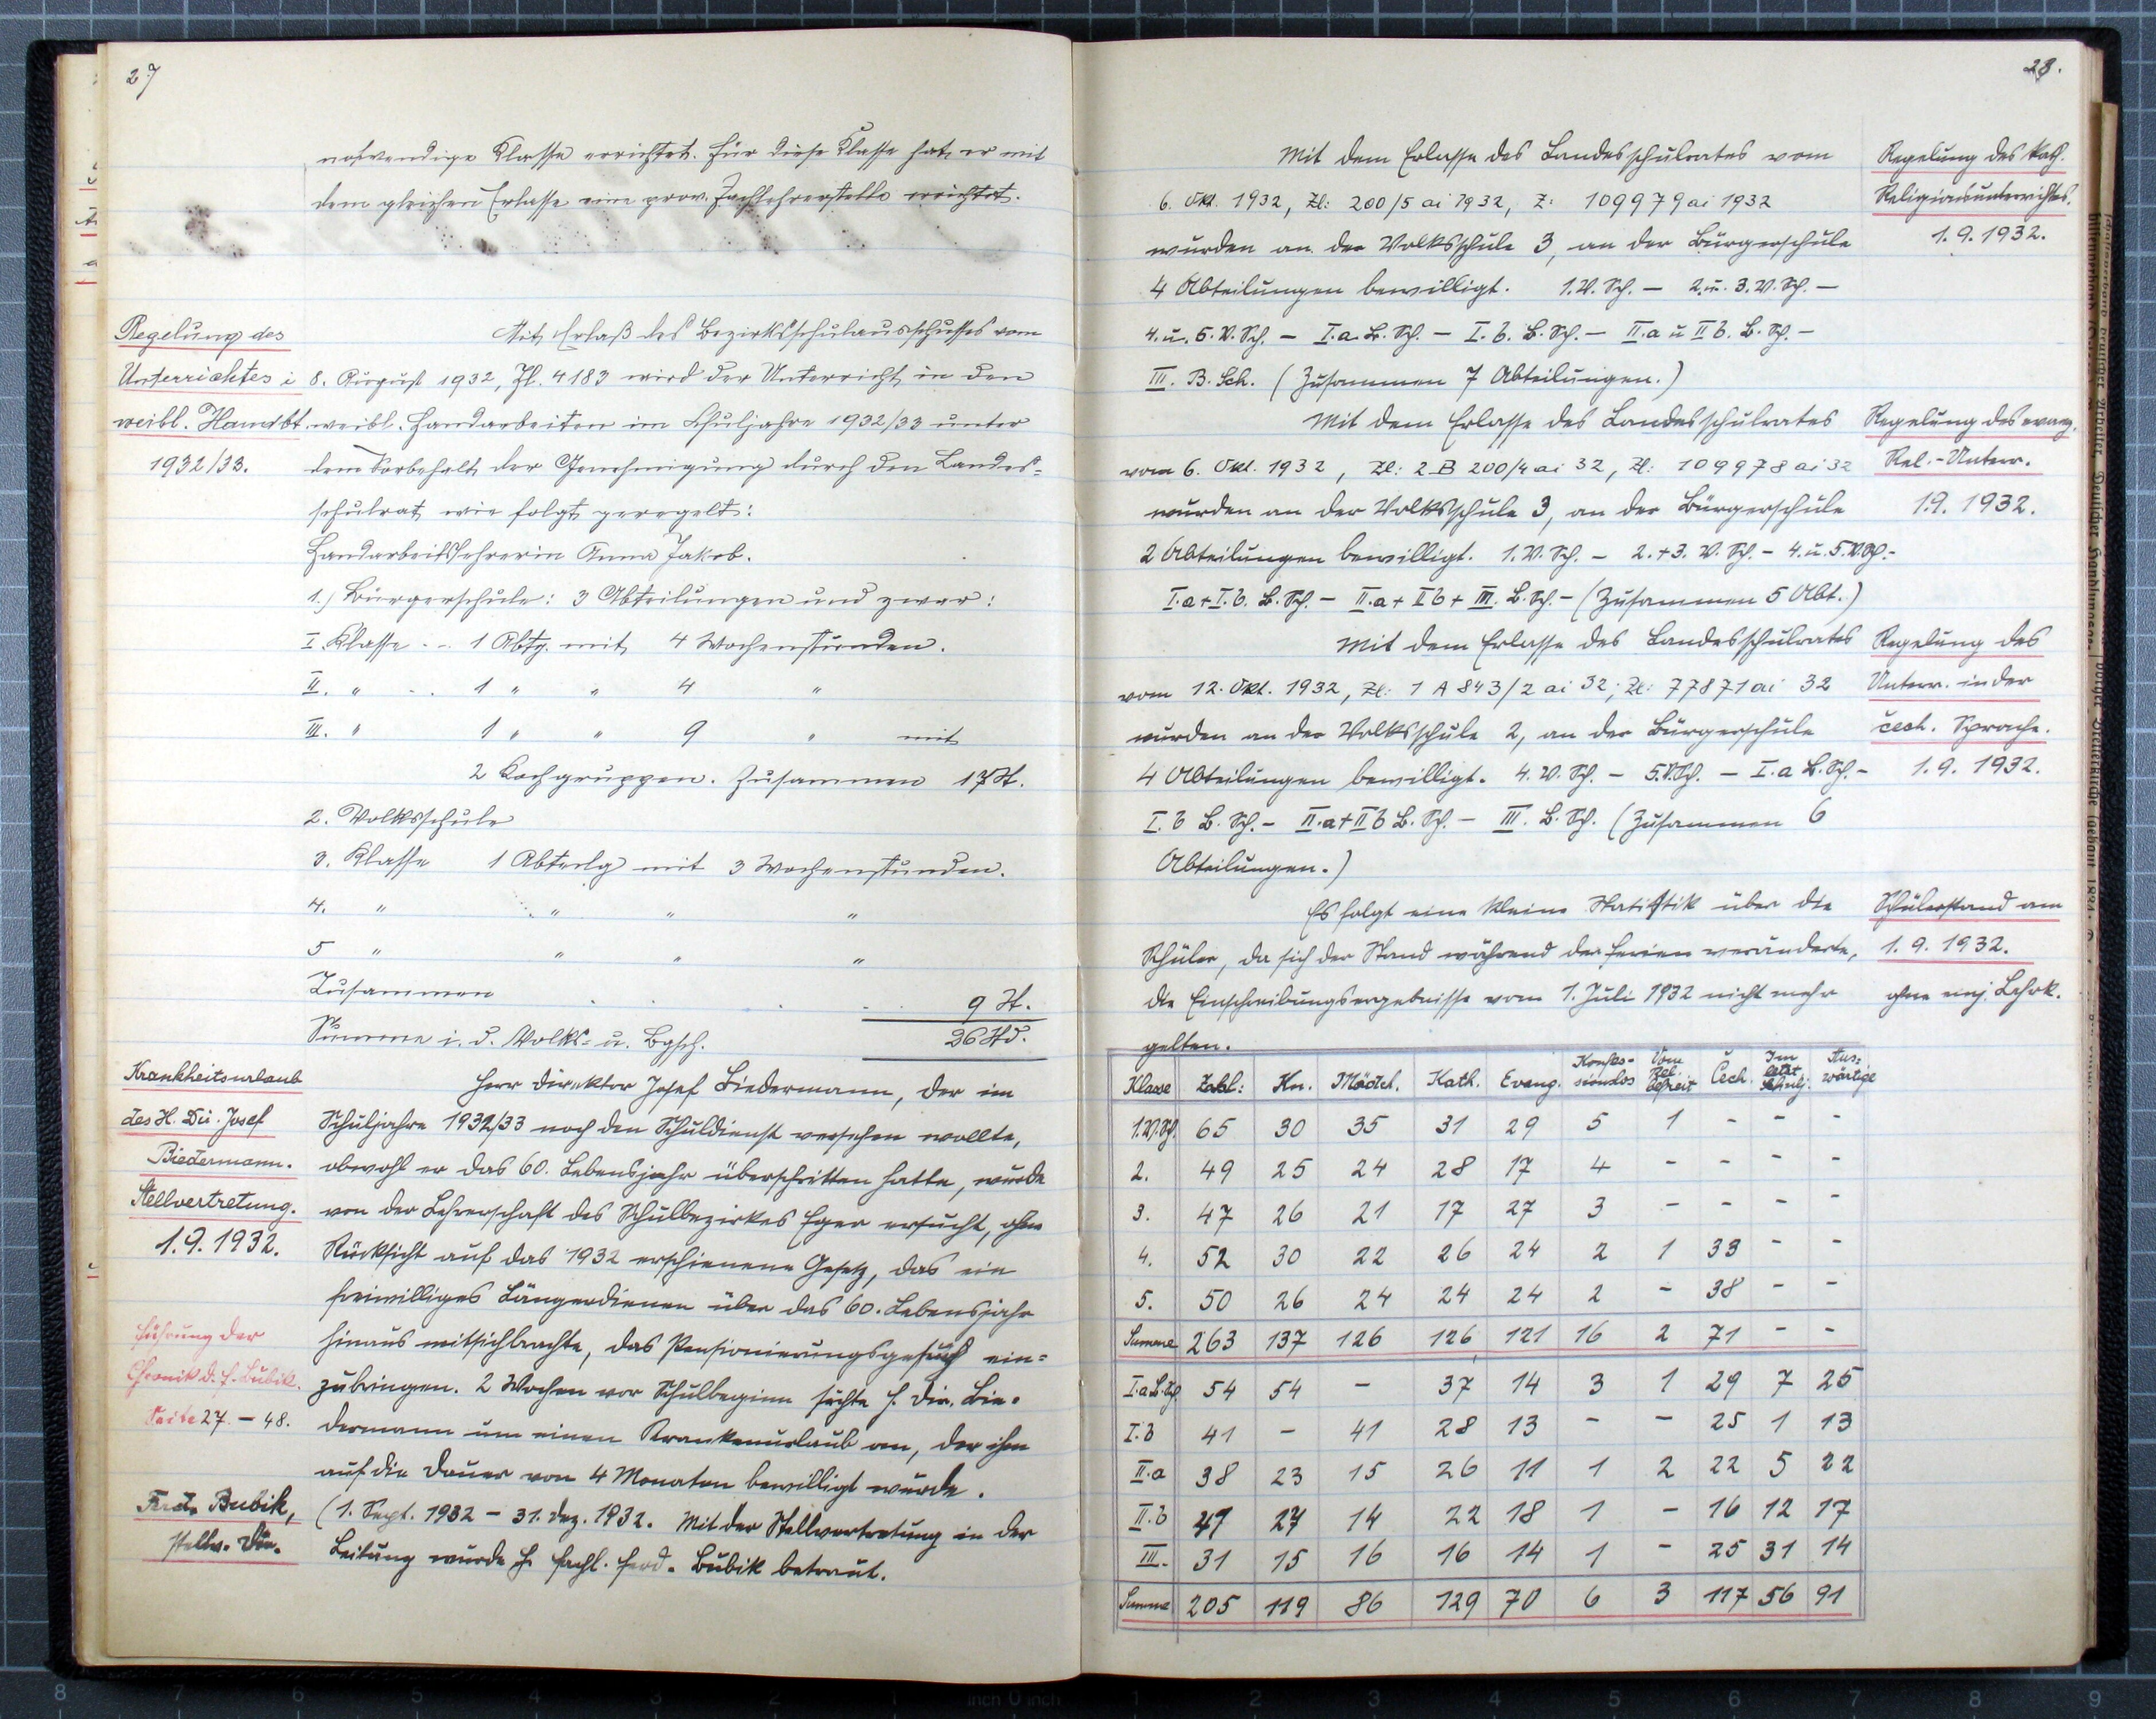 27
notwendige Klasse errichtet. Für diese Klasse hat er mit
dem gleichen Erlasse eine prov. Fachlehrerstelle errichtet.
Regelung des
Unterrichtes i
weibl. Handbt.
1932/33.
Mit Erlaß des Bezirksschulausschusses vom
8. August 1932, Zl. 4183 wird der Unterricht in den
weibl. Handarbeiten im Schuljahre 1932/33 unter
dem Vorbehalt der Genehmigung durch den Landes=
schulrat wie folgt geregelt:
Handarbeitslehrerin Anna Jakob.
1.) Bürgerschule: 3 Abteilungen und zwar:
I. Klasse - - 1 Abtg. mit 4 Wochenstunden.
II. " - . 1 " " 4 "
III. " 1 " " 9 " mit
2 Kochgruppen. Zusammen 17 St.
2. Volksschule
3. Klasse 1 Abteilg mit 3 Wochenstunden.
4. " " " "
5 " " " "
Zusammen . . . . . 9 St.
Summe i. d. Volks= u. Bgsch. 26 Std.
Krankheitsurlaub
des H. Dir. Josef
Biedermann.
Stellvertretung.
1.9.1932.
Herr Direktor Josef Biedermann, der im
Schuljahre 1932/33 noch den Schuldienst versehen wollte,
obwohl er das 60. Lebensjahr überschritten hatte, wurde
von der Lehrerschaft des Schulbezirkes Eger ersucht, ohne
Rücksicht auf das 1932 erschienene Gesetz, das ein
freiwilliges Längerdienen über das 60. Lebensjahr
hinaus mitsichbrachte, das Pensionierungsgesuch ein=
zubringen. 2 Wochen vor Schulbeginn suchte H. Dir. Bie=
dermann um einen Krankenurlaub an, der ihm
auf die Dauer von 4 Monaten bewilligt wurde.
(1. Sept. 1932 – 31. Dez. 1932. Mit der Stellvertretung in der
Leitung wurde H. Fachl. Ferd. Bubik betraut.
Führung der
Chronik d. H. Bubik.
Seite 27. – 48.
Ferd. Bubik,
stellv. Dir.
28.
Mit dem Erlasse des Landesschulrates vom
6. Okt. 1932, Zl: 200/5 ai 1932, Z: 109979 ai 1932
wurden an der Volksschule 3, an der Bürgerschule
4 Abteilungen bewilligt. 1. V. Sch. – 2. u. 3. V. Sch. –
4. u. 5. V. Sch. – I. a. B. Sch. – I. b. B. Sch. – II. a u II b. B. Sch. –
III. B. Sch. (Zusammen 7 Abteilungen.)
Regelung des kath.
Religionsunterrichtes.
1.9.1932.
Mit dem Erlasse des Landesschulrates
vom 6. Okt. 1932, Zl: 2 B 200/4 ai 32, Zl: 109978 ai 32
wurden an der Volksschule 3, an der Bürgerschule
2 Abteilungen bewilligt. 1. V. Sch. – 2. + 3. V. Sch. – 4. u. 5. V. Sch. –
I. a + I. b. B. Sch. – II. a + II b + III. B. Sch. – (Zusammen 5 Abt.)
Regelung des evang.
Rel. - Unterr.
1.9. 1932.
Mit dem Erlasse des Landesschulrates
vom 12. Okt. 1932, Zl: 1 A 843/2 ai 32; Zl: 77871 ai 32
wurden an der Volksschule 2, an der Bürgerschule
4 Abteilungen bewilligt. 4. V. Sch. – 5. V. Sch. – I. a B. Sch. –
I. b B. Sch. – II. a + II b B. Sch. – III. B. Sch. (Zusammen 6
Abteilungen.)
Regelung des
Unterr. in der
čech. Sprache.
1.9. 1932.
Es folgt eine kleine Statistik über die
Schüler, da sich der Stand während der Ferien veränderte,
die Einschreibungsergebnisse vom 1. Juli 1932 nicht mehr
gelten.
Schülerstand am
1.9. 1932.
ohne einj. Lehrk.
Klasse Zahl: Kn. Mädch. Kath. Evang. Konfes-sionslos Vom Rel. befreit Čech. Im letzt. Schulj. Aus=wärtige
1. V. Sch. 65 30 35 31 29 5 1 - - -
2. 49 25 24 28 17 4 - - - -
3. 47 26 21 17 27 3 - - - -
4. 52 30 22 26 24 2 1 33 - -
5. 50 26 24 24 24 2 - 38 - -
Summe 263 137 126 126 121 16 2 71 - -
I. a B. Sch. 54 54 – 37 14 3 1 29 7 25
I. b 41 – 41 28 13 - - 25 1 13
II. a 38 23 15 26 11 1 2 22 5 22
II. b 41 27 14 22 18 1 - 16 12 17
III. 31 15 16 16 14 1 - 25 31 14
Summe 205 119 86 129 70 6 3 117 56 91